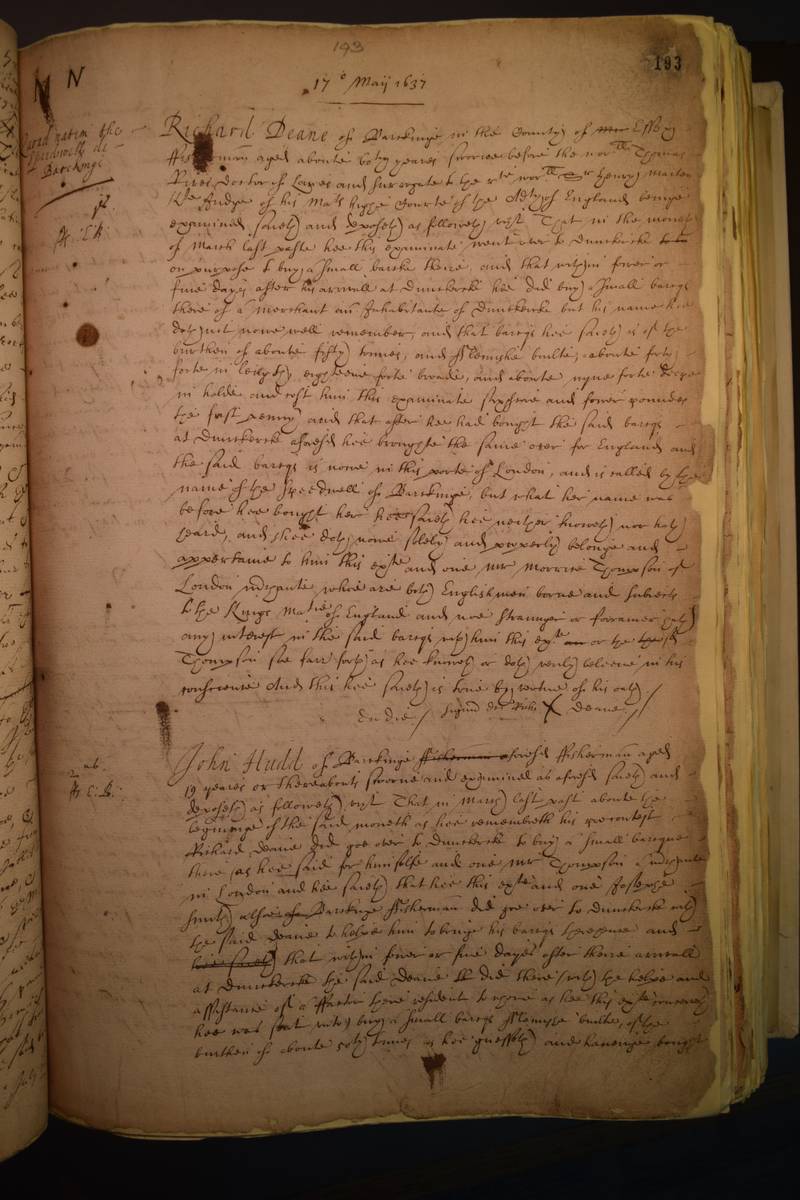 193
193
17° Maij 1637
N N
Richard Deane of Barkinge in the County of Essex
ffisherman aged aboute yeares sworne before the wor:ll Thomas
Rives Doctor of Lawes and Surrogate to the rte worll Sr Henry Marten
kte Judge of his Mats highe Courte of the Adtye of England beinge
examined saieth and deposeth as followeth vizt That in the moneth
of March last paste hee this examinate went over to Dunckerke
on purpose to buy a small barke there, and that within fower or
five dayes after his arrivall at Dunckerke hee did buy a small barqe
there of a merchant an Inhabitante of Dunckerke but his name hee
doth not nowe well remember, and that barqe hee saieth is of the
burthen of aboute fifty tonnes, and fflemishe builte, aboute forty
foote in length, eighteene foote broade, and aboute nyne foote deepe
in holde and cost him this examinate and fower poundes
the first penny and that after hee had bought the said barqe
at Dunckerke aforesd hee broughte the same over for England and
the said barqe is nowe in this porte of London, and is called by the
name of the Speedwell of Barkinge, but what her name was
before hee bought her hee saieth hee neither knoweth nor hath
heard, and shee doth nowe solely and properly belonge and
appertaine to him this exte and one Mr Morrice Thompson of
London mrchante whoe are both Englishmen borne and subiects
to the Kings Matie of England and noe stranger or forrainer hath
any interest in the said barqe with him this exte or the sd
Thompson soe farr forth as hee knoweth or doth verily beleeve in his
conscience And this hee saieth is true by vertue of his oath
Signum dci Richi X Deane
John Hudd of Barkinge ffisherman aforesd ffisherman aged
19 yeares or thereabouts sworne and examined as aforesd saieth and
deposeth as followeth vizt That in March last past aboute the
beginninge of the said moneth as hee remembreth his precontest
Richard Deane did goe over to Dunckerke to buy a small barque
there as hee said for himselfe and one Mr Thompson a mrchante
in London and hee saieth that hee this exte and one Josephe
Smith also of Barkinge ffisherman did goe over to Dunckerke with
the said Deane to helpe him to bringe his barqe thence and
hee saieth that within fower or five dayes after there arrivall
at Dunckerke the said Deane did there with the helpe and
assistance of a ffactor there resident to whome as hee this exte
hee was sent unto buy a small barqe fflemishe builte, of the
burthen of aboute 50ty tonnes as hee guesseth and haveinge bought